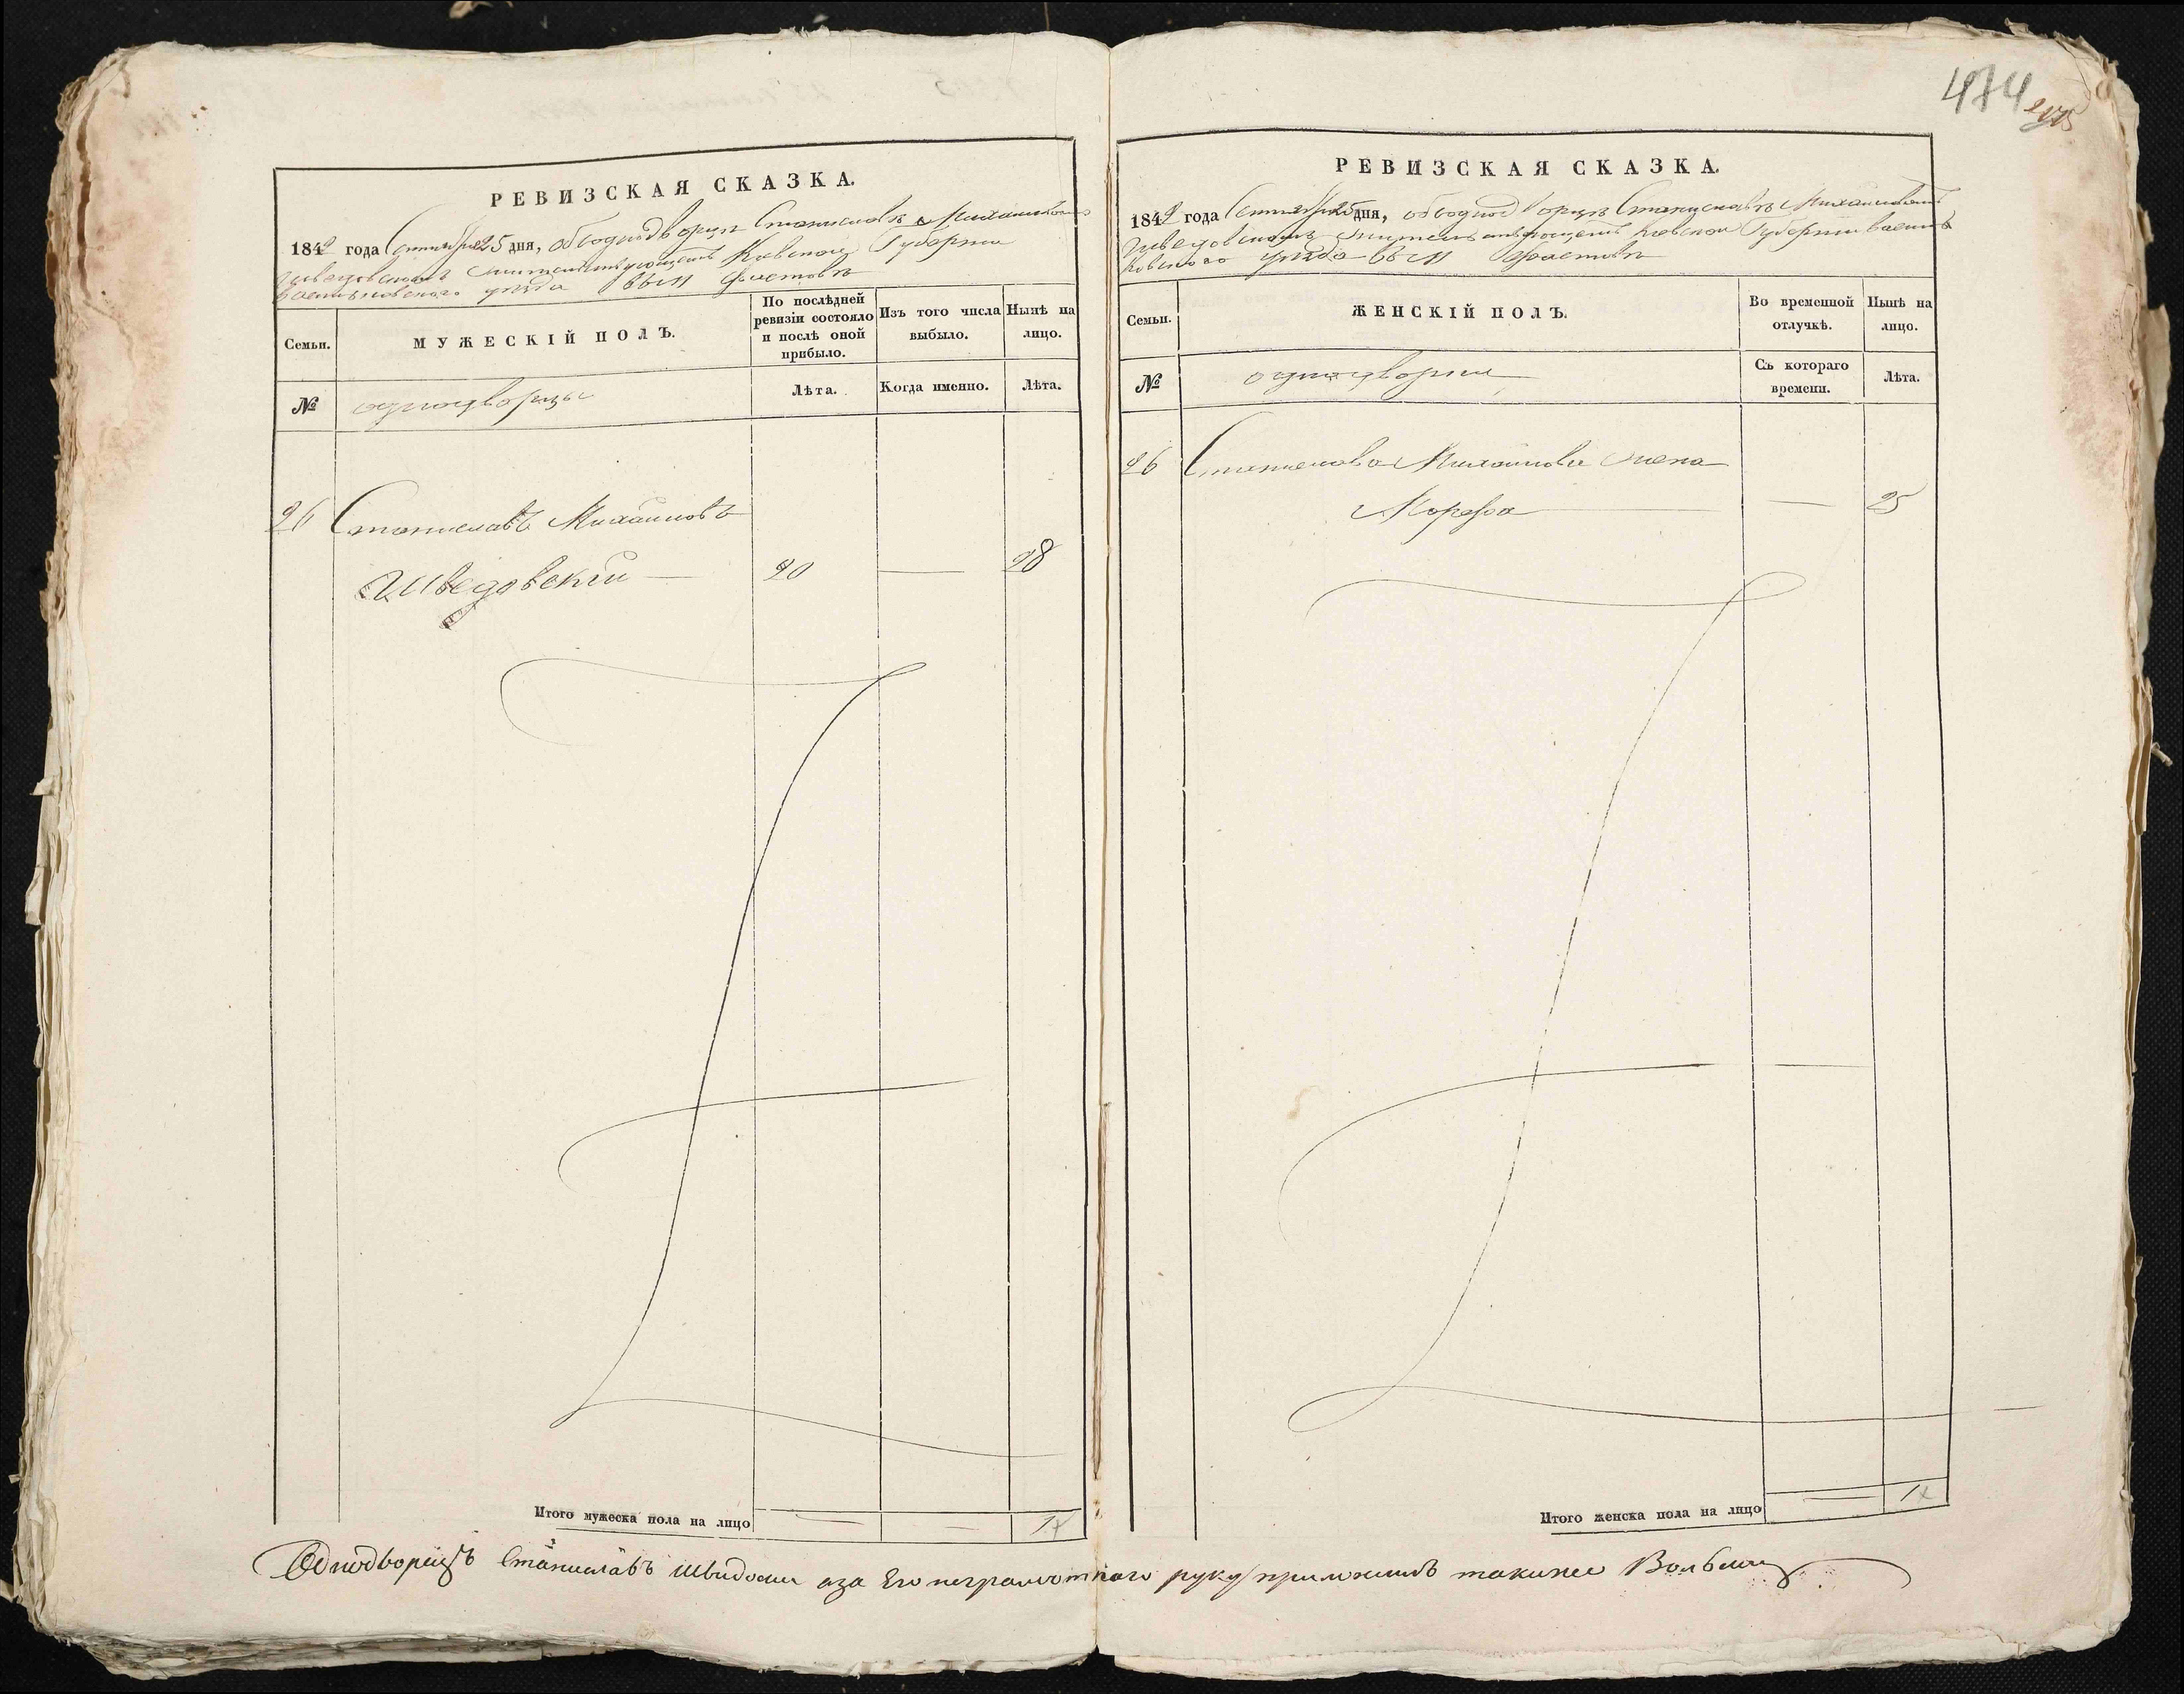 474
РЕВИЗСКАЯ СКАЗКА.
1842 года Сентября 25 дня, объ однодворцѣ Станиславѣ Михайловѣ
Шведовскомъ жительствующемъ Кіевской Губерніи
Васильковскаго уѣзда въ м Фастовѣ
Семьи.
МУЖЕСКІЙ ПОЛЪ.
По послѣдней ревизіи состояло и послѣ оной прибыло.
Изъ того числа выбыло.
Нынѣ на лицо.
№
однодворцы
Лѣта.
Когда именно.
Лѣта.
26 Станиславъ Михайловъ
Шведовскій — 20 — 28
Итого мужеска пола на лицо — — 1
РЕВИЗСКАЯ СКАЗКА.
1842 года Сентября 25 дня, объ однодворцѣ Станиславѣ Михайловѣ
Шведовскомъ жительствующемъ Кіевской Губерніи Василь
ковскаго уѣзда въ м Фастовѣ
Семьи.
ЖЕНСКІЙ ПОЛЪ.
Во временной отлучкѣ.
Нынѣ на лицо.
№
однодворки
Съ котораго времени.
Лѣта.
26 Станислава Михайлова жена
— 25
Итого женска пола на лицо — 1
Однодворецъ Станиславъ аза Его неграмотнаго руку приложилъ